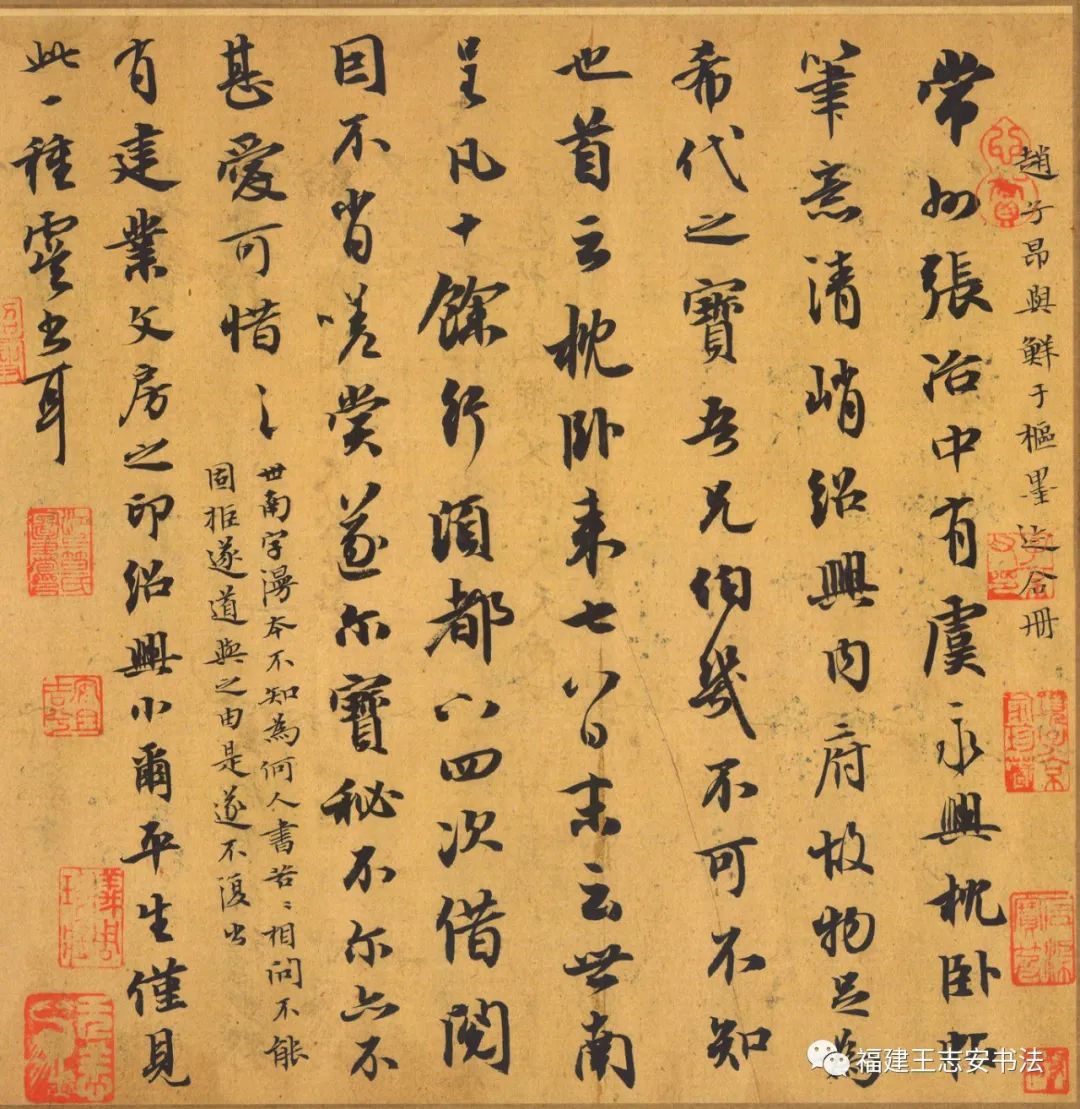 趙子昂與鮮于樞墨迹合册
常州張治中有虞永興枕卧帖
筆意清峭紹興内府故物足為
希代之寶吾兄伯幾不可不知
也首云枕卧来七八日末云世南
呈凡十餘行頃都下四次借閲
因不肖嗟賞遂尔寶秘不尔亦不
甚愛可惜〻
世南字漫本不知為何人書苦〻相問不能
固拒遂道與之由是遂不復出
有建業文房之印紹興小爾平生僅見
此一種虞書耳
福建王志安书法